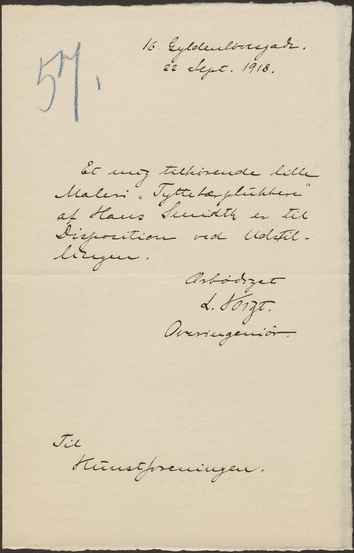 57,
16 Gyldenløvsgade.
22 Sept. 1918.
Et mig tilhörende lille
Maleri „Tyttebærplukkere"
af Hans Smidth er til
Disposition ved Udstil-
lingen.
Arbödigst
L. Voigt.
Overingeniör.
Til
Kunstforeningen.